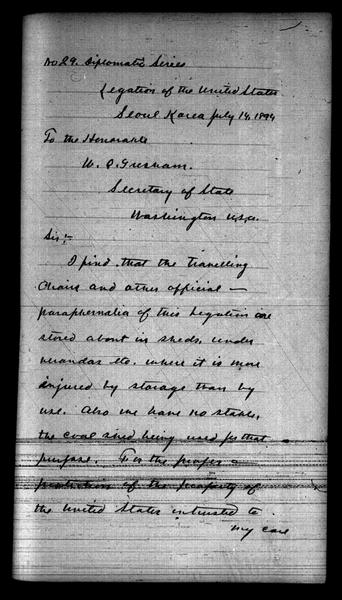 No 29. Diplomatic Series
Legation of the United States
Seoul Korea July 14, 1894
To the Honorable
W. Q. Gresham.
Secretary of State
Washington U.S.A.
Sir:-
I find that the travelling
chairs and other official
paraphernalia of this Legation are
stored about in sheds, under
verandas etc. where it is more
injured by storage than by
use. Also we have no stable,
the coal shed being used for that
purpose. For the proper
protection of the property of
the United States intrusted to
my care